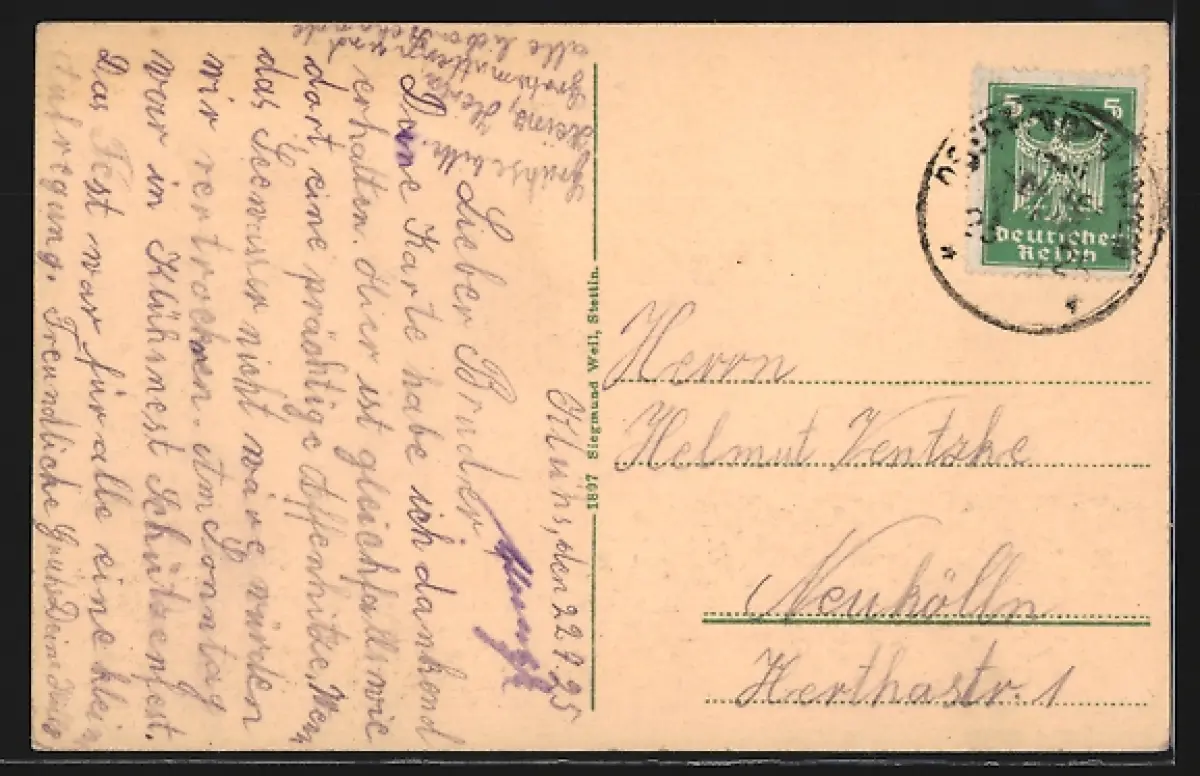 den 22.7.25
Lieber Bruder!
Deine Karte habe ich dankend
erhalten. Hier ist gleichfalls wie
dort eine prächtige Affenhitze. Wenn
das Seewasser nicht wäre würden
wir vertrocknen. Am Sonntag
war in Klühmest Schützenfest.
Das Fest war für alle eine kleine
Aufregung. Freundliche Grüße Deine
Grüße bitte
Heinz, Herta
Grossmutter und
alle
1897 Siegmund Weil, Stettin.
5 5
Deutsches
Reich
Herrn
Helmut Ventzke
Neukölln
Herthastr. 1